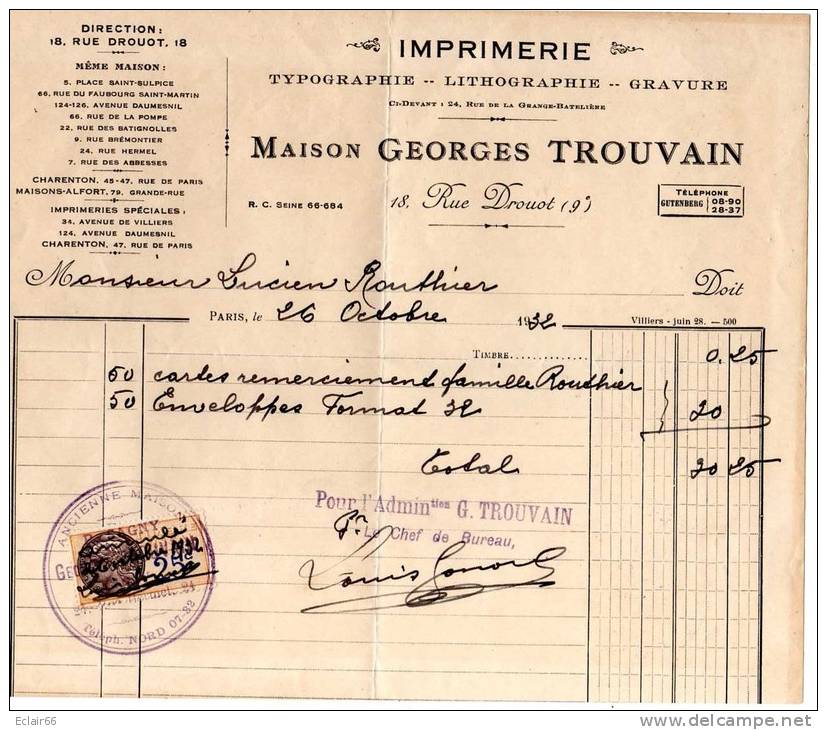 DIRECTION:
18, RUE DROUOT, 18
MÊME MAISON:
5, PLACE SAINT-SULPICE
66, RUE DU FAUBOURG SAINT-MARTIN
124-126, AVENUE DAUMESNIL
66, RUE DE LA POMPE
22, RUE DES BATIGNOLLES
9, RUE BRÉMONTIER
24, RUE HERMEL
7, RUE DES ABBESSES
CHARENTON, 45-47, RUE DE PARIS
MAISONS-ALFORT, 79, GRANDE-RUE
IMPRIMERIES SPÉCIALES:
34, AVENUE DE VILLIERS
124, AVENUE DAUMESNIL
CHARENTON, 47, RUE DE PARIS
IMPRIMERIE
TYPOGRAPHIE -- LITHOGRAPHIE -- GRAVURE
CI-DEVANT: 24, RUE DE LA GRANGE-BATELIÈRE
MAISON GEORGES TROUVAIN
R. C. SEINE 66-684
18, Rue Drouot (9e)
TÉLÉPHONE
GUTENBERG 08-90
28-37
Monsieur Lucien Routhier Doit
PARIS, le 26 Octobre 1932
Villiers - juin 28. — 500
TIMBRE 0.25
50 cartes remerciement famille Routhier
50 Enveloppes Format 32 20
Total 20 25
Pour l'Admintion G. TROUVAIN
Le Chef de Bureau,
ANCIENNE MAISON
1932
25c
Téléph. NORD 07-82
Eclair66
delcampe.net